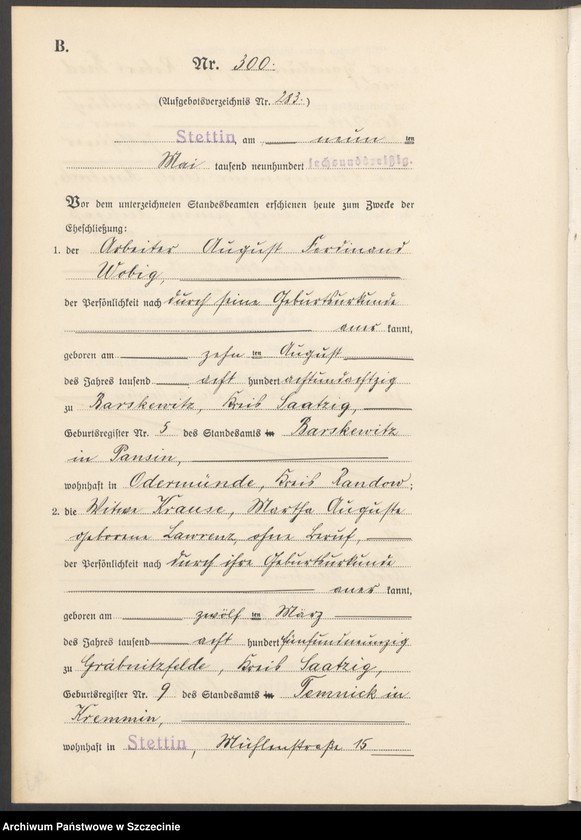 B.
Nr. 300.
(Aufgebotsverzeichnis Nr. 283.)
Stettin, am neun ten
Mai tausend neunhundert sechsunddreißig.
Vor dem unterzeichneten Standesbeamten erschienen heute zum Zwecke der
Eheschließung:
1. der Arbeiter August Ferdinand
Wobig,
der Persönlichkeit nach durch seine Geburtsurkunde
aner kannt,
geboren am zehn ten August
des Jahres tausend acht hundert achtundachtzig
zu Barskewitz, Kreis Saatzig,
Geburtsregister Nr. 5 des Standesamts in Barskewitz
in Pansin,
wohnhaft in Odermünde, Kreis Randow;
2. die Witwe Krause, Martha Auguste
geborene Lawrenz, ohne Beruf,
der Persönlichkeit nach durch ihre Geburtsurkunde
aner kannt,
geboren am zwölf ten März
des Jahres tausend acht hundert fünfundneunzig
zu Grabnitzfelde, Kreis Saatzig,
Geburtsregister Nr. 9 des Standesamts in Temnick in
Kremmin,
wohnhaft in Stettin, Mühlenstraße 15
Archiwum Państwowe w Szczecinie